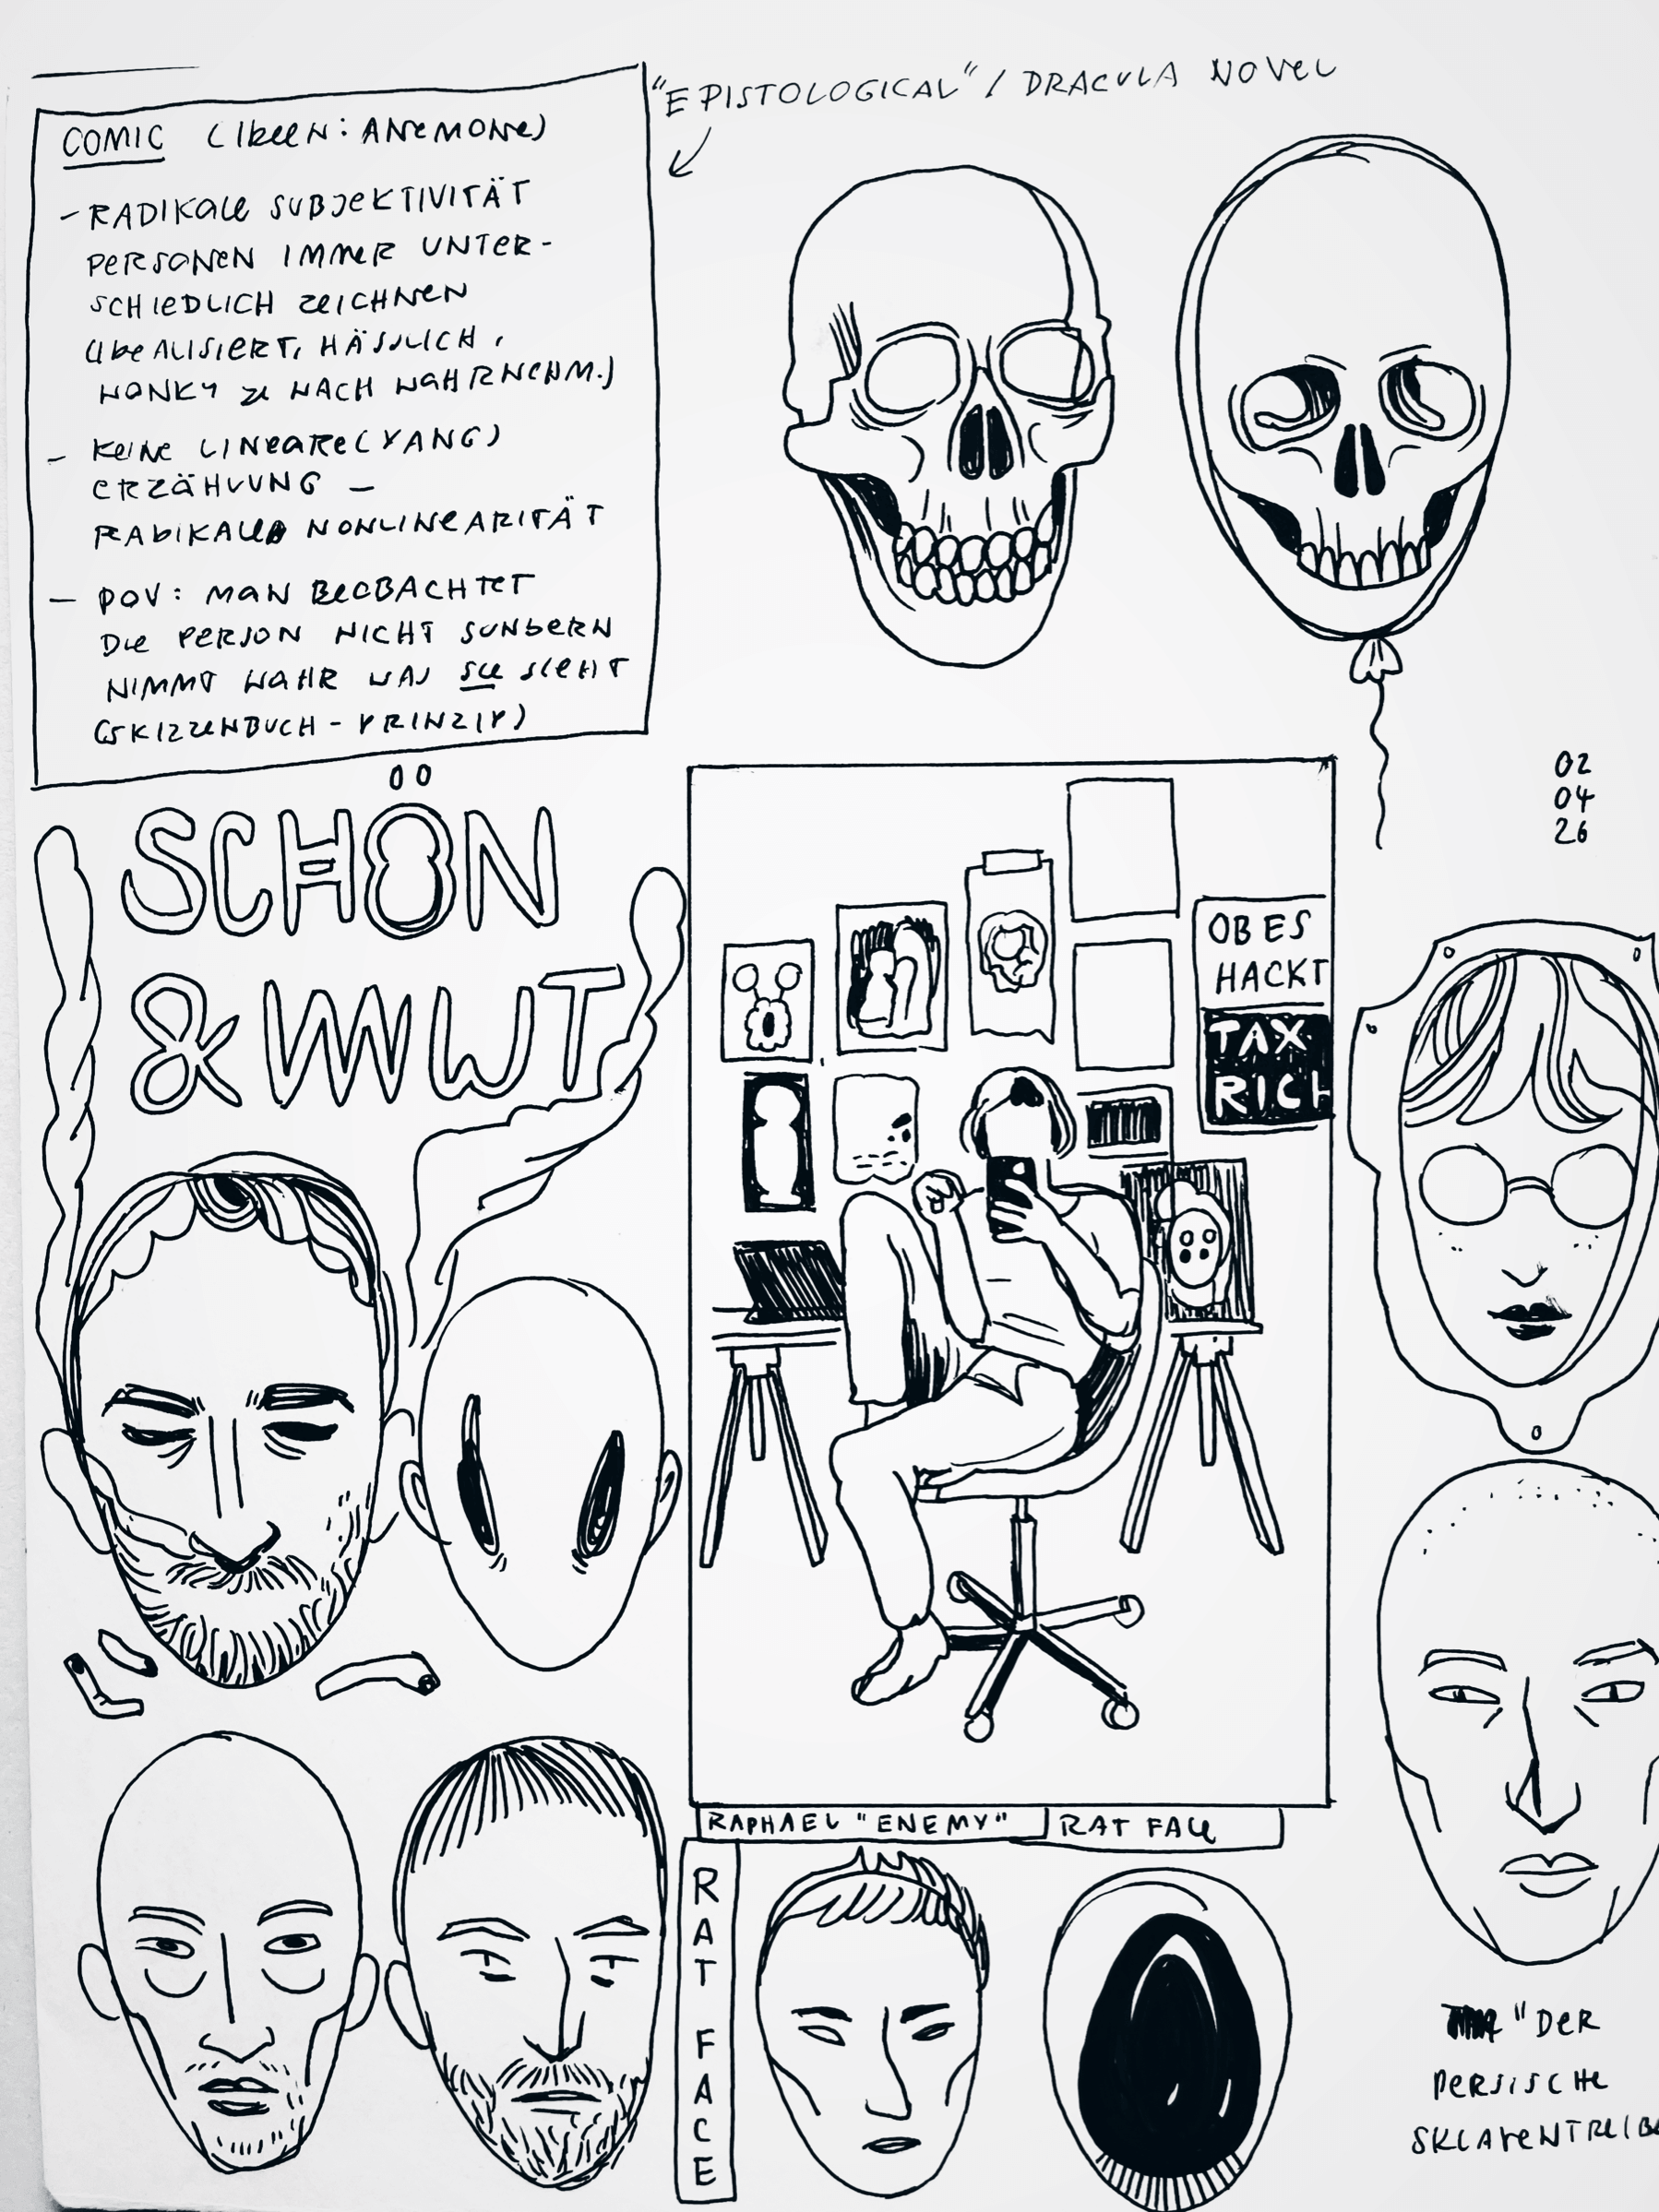 "EPISTOLOGICAL" / DRACULA NOVEL
COMIC (IDEEN: ANEMONE)
- RADIKALE SUBJEKTIVITÄT
PERSONEN IMMER UNTER-
SCHIEDLICH ZEICHNEN
(IDEALISIERT, HÄSSLICH,
WONKY JE NACH WAHRNEHM.)
- KEINE LINEARE (YANG)
ERZÄHLUNG -
RADIKALE NONLINEARITÄT
- POV: MAN BEOBACHTET
DIE PERSON NICHT SONDERN
NIMMT WAHR WAS SIE SIEHT
(SKIZZENBUCH-PRINZIP)
02
04
26
SCHÖN
&
OBES
HACKT
TAX
RICH
RAPHAEL "ENEMY"
RAT FACE
RAT FACE
"DER
PERSISCHE
SKLAVENTREIBE